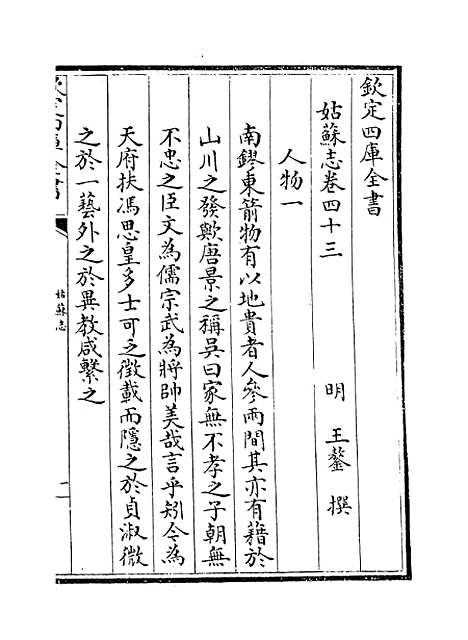 欽定四庫全書
姑蘇志卷四十三
明 王鏊 撰
人物一
南鏐東箭物有以地貴者人參兩間其亦有藉於
山川之發歟唐景之稱吳曰家無不孝之子朝無
不忠之臣文為儒宗武為將帥美哉言乎矧今為
天府扶馮思皇多士可乏徵載而隱之於貞淑微
之於一藝外之於異教咸繫之
欽定四庫全書
姑蘇志